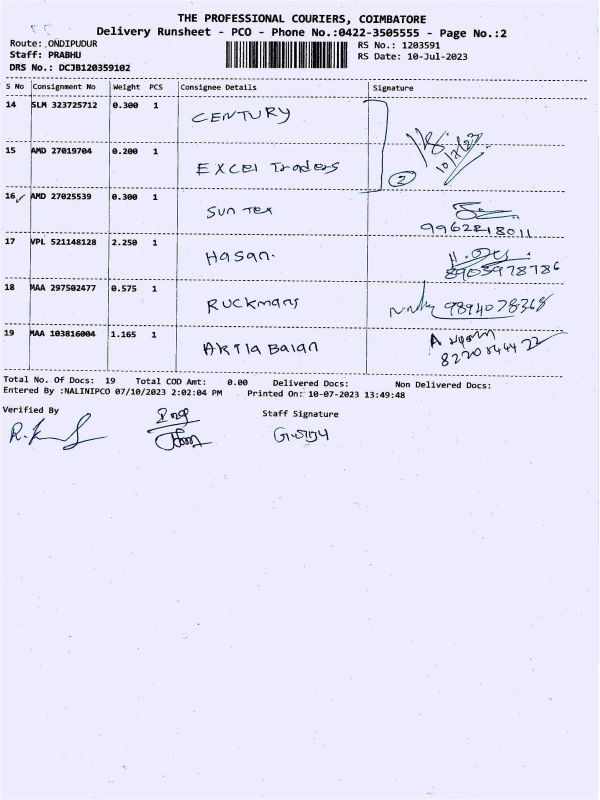 THE PROFESSIONAL COURIERS, COIMBATORE
Delivery Runsheet - PCO - Phone No.:0422-3505555 - Page No.:2
Route: ONDIPUDUR
Staff: PRABHU
DRS No.: DCJB120359102
RS No.: 1203591
RS Date: 10-Jul-2023
S No Consignment No Weight PCS Consignee Details Signature
14 SLM 323725712 0.300 1 CENTURY
10/7/23
15 AMD 27019704 0.200 1 Excel Traders 2
16 AMD 27025539 0.300 1 Sun Tex
9962818011
17 VPL 521148128 2.250 1 Hasan.
8903978786
18 MAA 297502477 0.575 1 Ruckmans 9894078368
19 MAA 103816004 1.165 1
Total No. Of Docs: 19 Total COD Amt: 0.00 Delivered Docs: Non Delivered Docs:
Entered By :NALINIPCO 07/10/2023 2:02:04 PM Printed On: 10-07-2023 13:49:48
Verified By Staff Signature